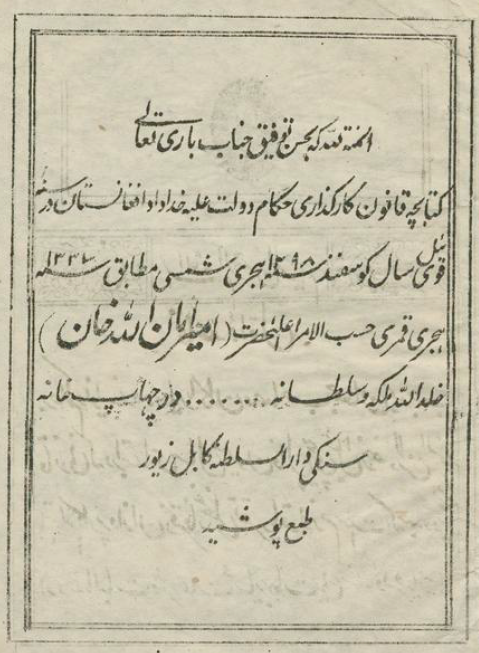 المنة لله که بحسن توفیق جناب باری تعالی
کتابچه قانون کارگذاری حکام دولت علیه خداداد افغانستان در سنه
قوی ئیل سال گوسفند سنه ۱۲۹۸ هجری شمسی مطابق سنه ۱۳۳۷
هجری قمری حسب الامر اعلیحضرت (امیر امان الله خان)
خلد الله ملکه وسلطانه ....... در چهاپ خانه
سنگی دار السلطنه کابل زیور
طبع پوشید